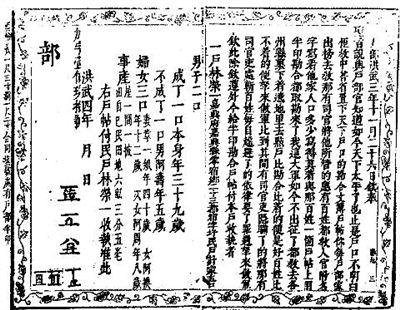 洪武三年十一月二十六日欽奉
聖旨說與户部官知道如今天下太平了也止是户口不明白
俚教中書省置天下户口的勘合文簿户帖你每户部家
出榜去教那有司官將他所管的應有百姓都教入官附名
字寫着他家人口多少寫得真着與那百姓一個户帖上用
半印勘合都取勘來了我這大軍如今不出征了都教去各
州縣裏下着遶地里去點户比勘合比着的便是好百姓比
不着的便拏來做軍比到其間有司官吏隱瞞了的將那有
司官吏處斬百姓每自躱避了的依律要了罪過拏來做軍
欽此除欽遵外今給半印勘合户帖付本户收執者
一户林榮一嘉興府嘉興縣零宿鄉二十三都宿字圩民户計家五口
男子二口
成丁一口本身年三十九歲
不成丁一口男阿壽年五歲
婦女三口妻章一娘年四十歲 女阿換 次女阿周年八歲
事產屋一間 田自己民田地六畝三分五毫
右户帖付民户林榮一收執准此
洪武四年 月 日
部